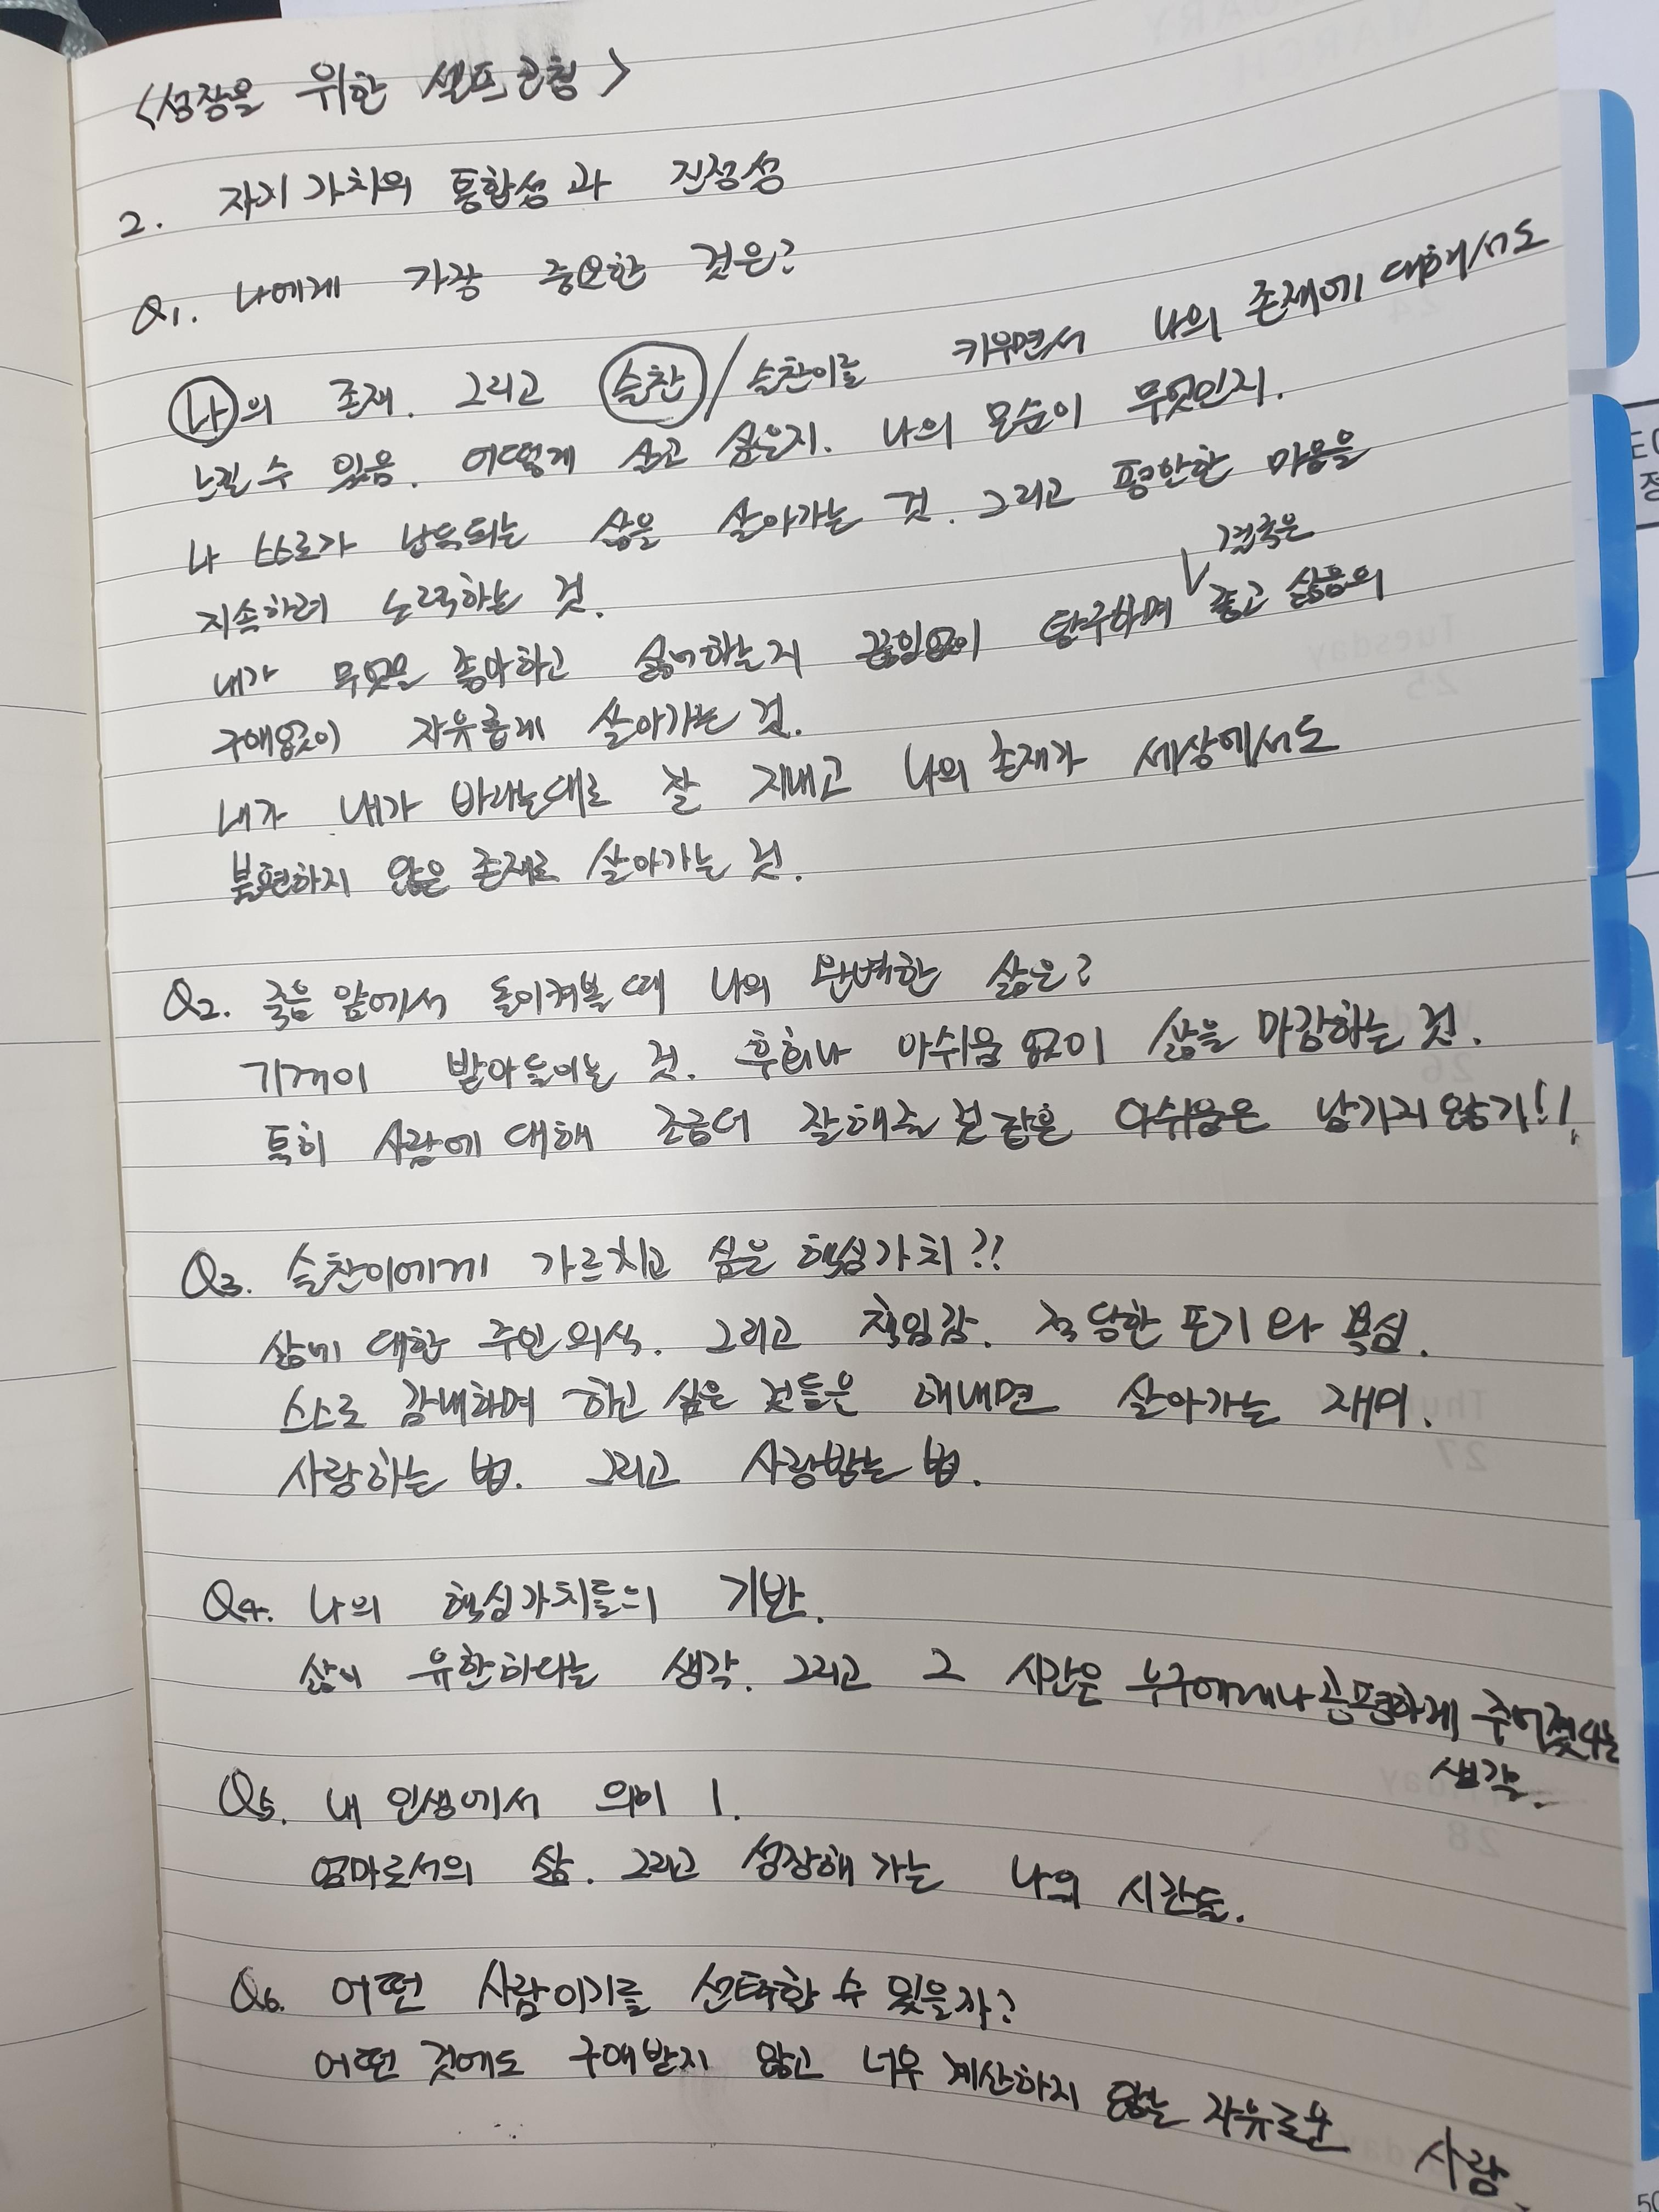 <성장을 위한 셀프 코칭>
2. 자기 가치의 통합성과 진정성
Q1. 나에게 가장 중요한 것은?
나의 존재. 그리고 슬찬 / 슬찬이를 키우면서 나의 존재에 대해서도
느낄 수 있음. 어떻게 살고 싶은지. 나의 모순이 무엇인지.
나 스스로가 납득되는 삶을 살아가는 것. 그리고 평안한 마음을
지속하려 노력하는 것.
결국은
내가 무엇을 좋아하고 싫어하는지 끊임없이 탐구하며 ∨ 좋고 싫음의
구애없이 자유롭게 살아가는 것.
내가 내가 바라는대로 잘 지내고 나의 존재가 세상에서도
불편하지 않은 존재로 살아가는 것.
Q2. 죽음 앞에서 돌이켜볼 때 나의 완벽한 삶은?
기꺼이 받아들이는 것. 후회나 아쉬움 없이 삶을 마감하는 것.
특히 사람에 대해 조금더 잘해줄 걸 같은 아쉬움은 남기지 않기!!
Q3. 슬찬이에게 가르치고 싶은 핵심가치??
삶에 대한 주인의식. 그리고 책임감. 적당한 포기와 욕심.
스스로 감내하며 하고 싶은 것들은 해내면 살아가는 재미.
사랑하는 법. 그리고 사랑받는 법.
Q4. 나의 핵심가치들의 기반.
삶이 유한하다는 생각. 그리고 그 시간은 누구에게나 공평하게 주어졌다는
생각.
Q5. 내 인생에서 의미 1.
엄마로서의 삶. 그리고 성장해 가는 나의 시간들.
Q6. 어떤 사람이기를 선택할 수 있을까?
어떤 것에도 구애받지 않고 너무 계산하지 않는 자유로운 사람.